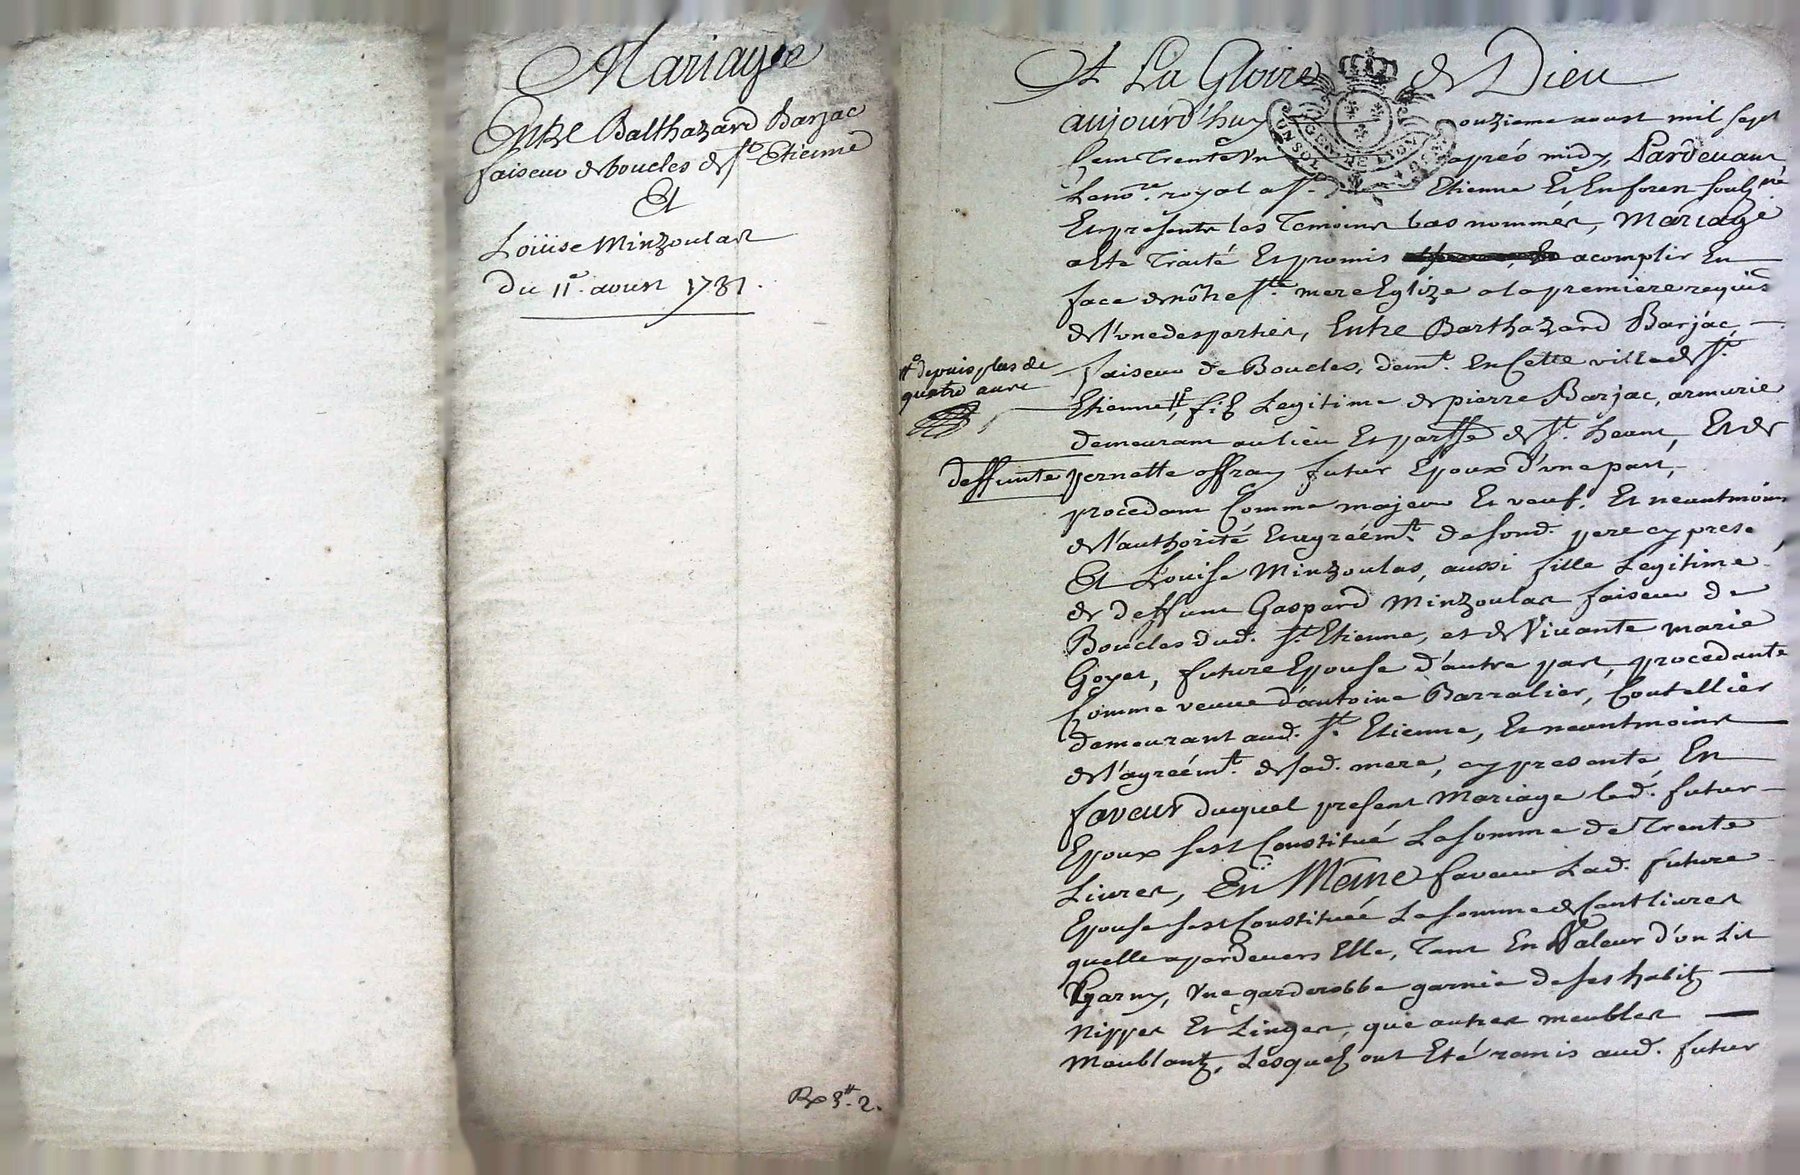 Mariage
Entre Balthazard Barjac
faiseur de boucles de St Etienne
Et
Loüise Minzoulas
Du 11e. aoust 1731.
Rx 3tt. 2.
A La Gloire de Dieu
aujourd'huy onzieme aoust mil sept
Cent Trente Un aprés midy, Pardevant
Le nore. royal a St. Etienne Et En forest soubzné
Et presents les Temoins bas nommés, Mariage
a Eté Traité Et promis acomplir En
face de nôtre Ste. mere Eglize a la premiere requis
de l'une des parties, Entre Barthazard Barjac,
faiseur de Boucles, demt. en Cette ville de St.
Etienne#, filz Legitime de pierre Barjac, armurié
# depuis plus de
quatre ans
demeurant au lieu Et parsse de St. heant, Et de
deffunte pernette offray futur Epoux d'une part,
procedant Comme majeur Et veuf, Et neantmoins
de l'authorité Et agréémt. de sond. pere cy presé
Et Loüise Minzoulas, aussi fille Legitime
de deffunt Gaspard Minzoulas faiseur de
Boucles dud. St. Etienne, et de Vivante marie
Goyet, future Epouse d'autre part, procedante
Comme veuve d'antoine Barralier, Coutellier
demeurant aud. St. Etienne, Et neantmoins
de l'agréémt. de sad. mere, cy presente, En
faveur duquel present Mariage led. futur
Epoux s'est Constitué La somme de Trente
Livres, En Meme faveur Lad. future
Epouse s'est Constituéé La somme de Cent livres
quelle a pardevers Elle, Tant En Valeur d'un Lit
Garny, Une garderobbe garnie de ses habitz
Nippes Et Linges, que autres meubles
Meublantz, Lesquelz ont Eté remis aud. futur